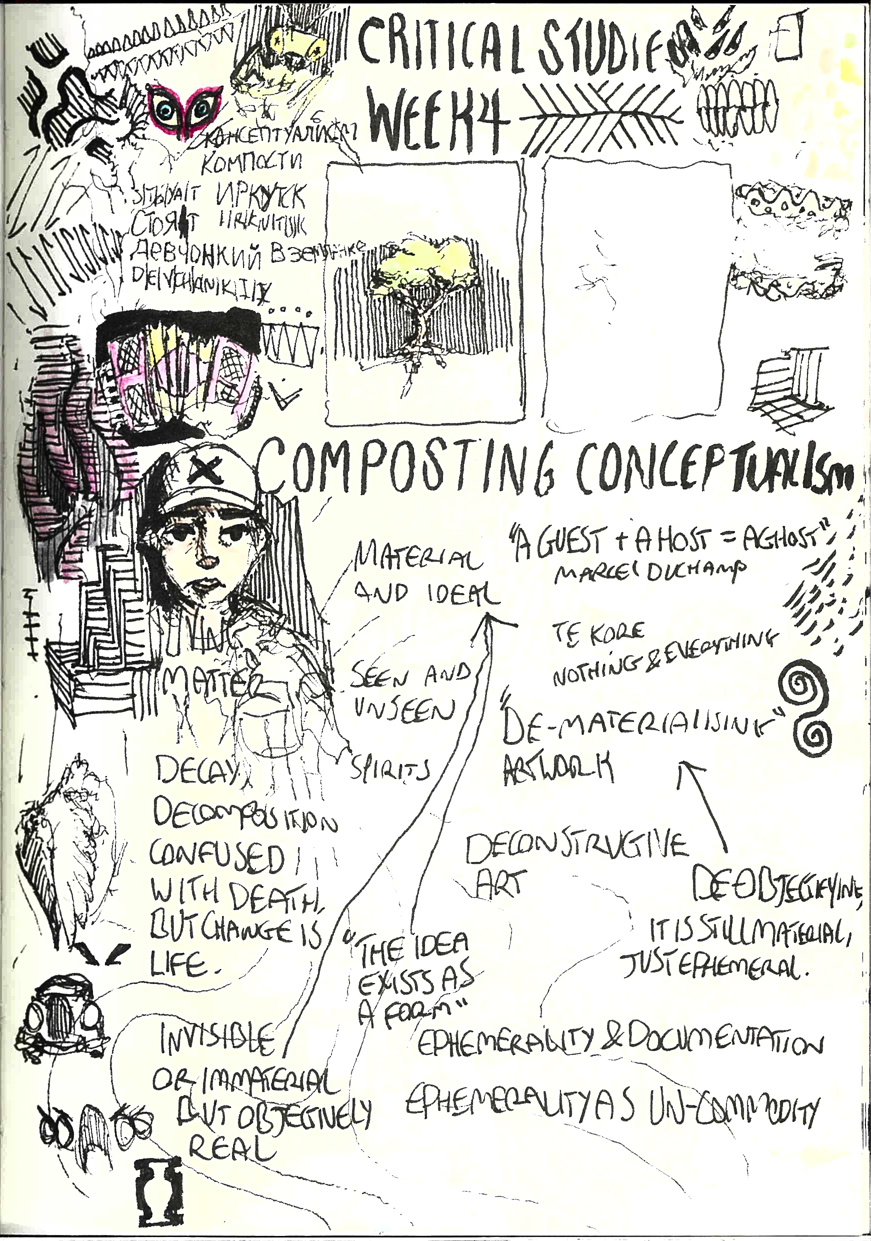 CRITICAL STUDIE
WEEK 4
КОНСЕПТУАЛИСМ
КОМПОСТИ
ИРКУТСК
СТОЯТ IIRKUTISK
ДЕВЧОНКИЙ
COMPOSTING CONCEPTUALISm
MATERIAL
AND IDEAL
"A GUEST + A HOST = A GHOST"
MARCEL DUCHAMP
TE KORE
NOTHING & EVERYTHING
IN
MATTER
SEEN AND
UNSEEN
SPIRITS
"DE-MATERIALISING"
ARTWORK
DECAY,
DECOMPOSITION
CONFUSED
WITH DEATH,
BUT CHANGE IS
LIFE.
DECONSTRUCTIVE
ART
DEOBJECTIFYING,
IT IS STILL MATERIAL,
JUST EPHEMERAL.
"THE IDEA
EXISTS AS
A FORM"
INVISIBLE
OR IMMATERIAL
BUT OBJECTIVELY
REAL
EPHEMERALITY & DOCUMENTATION
EPHEMERALITY AS UN-COMMODITY